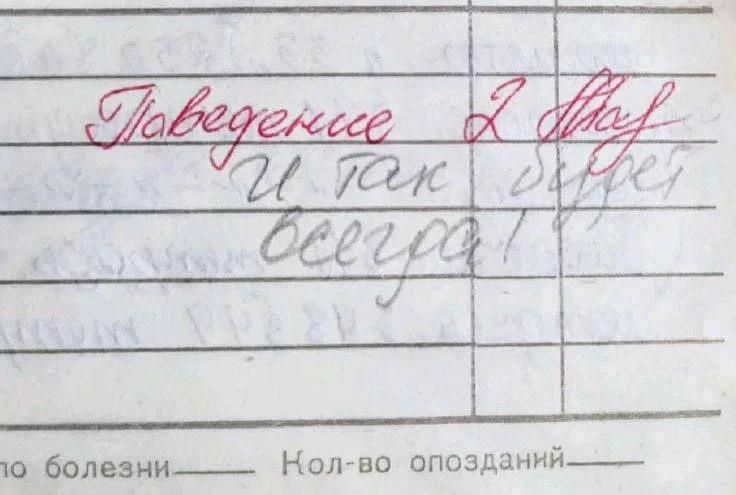 Поведение 2
И так будет
всегда!
по болезни Кол-во опозданий